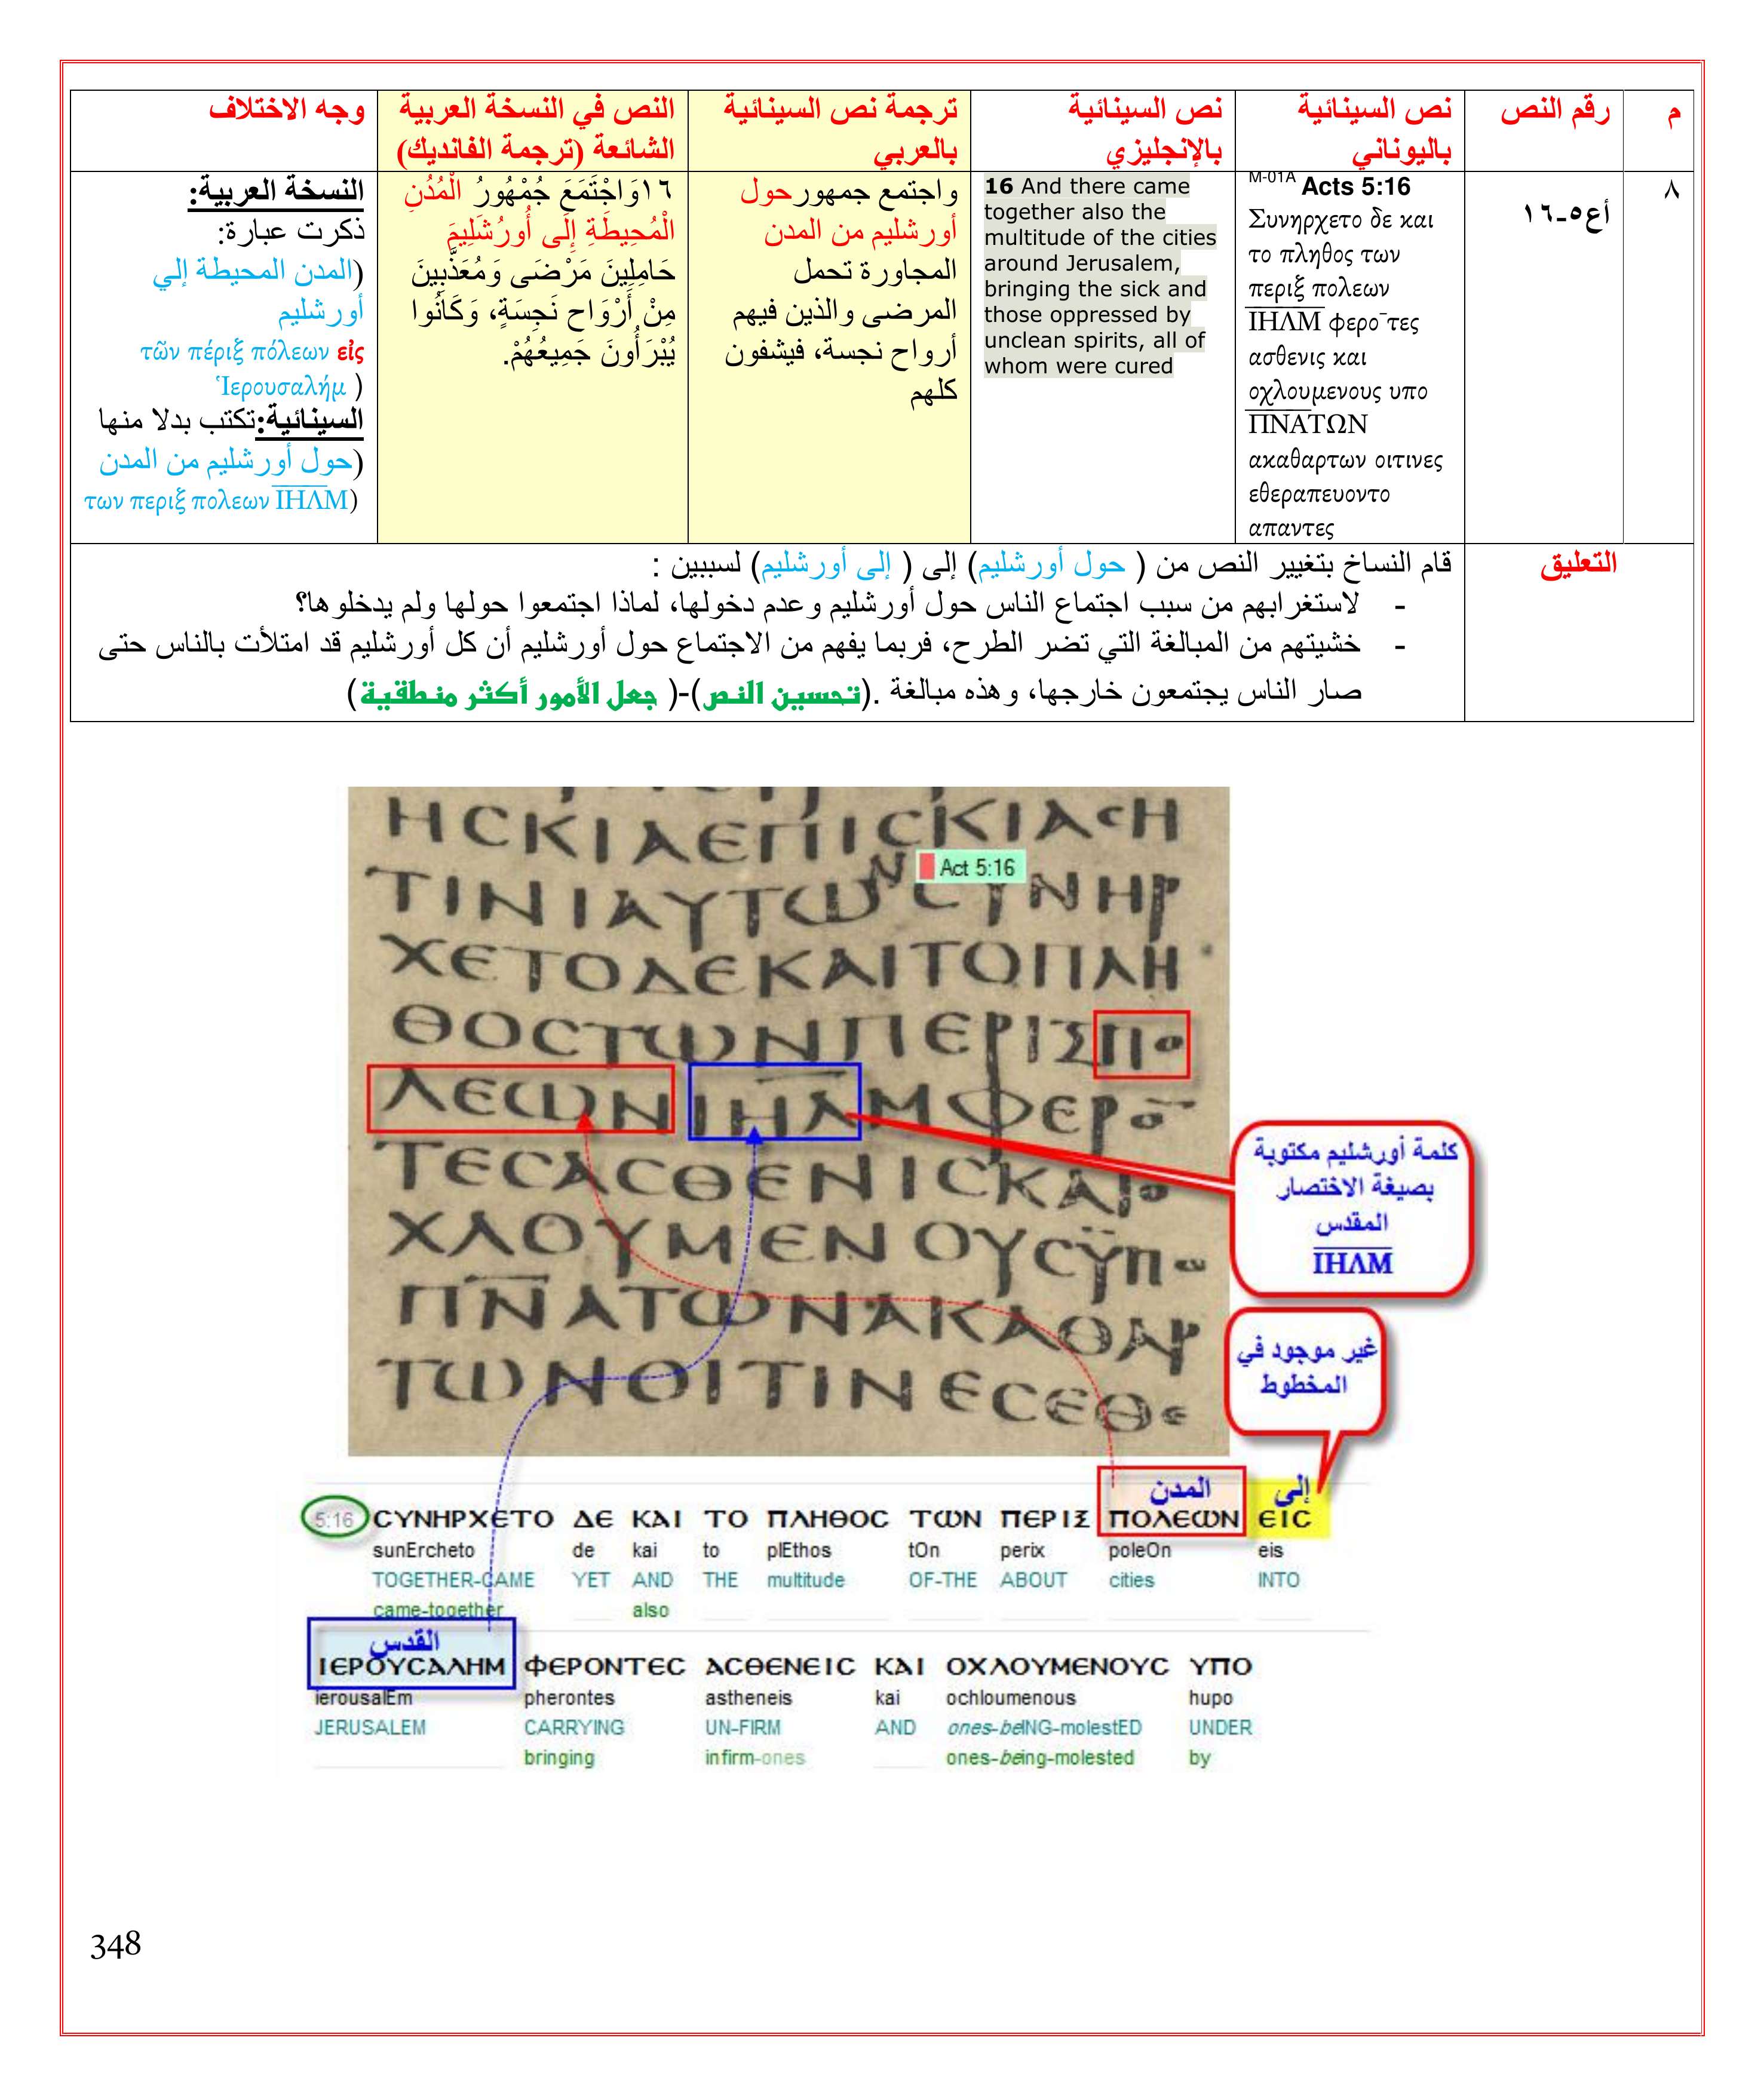 م
رقم النص
نص السينائية
باليوناني
نص السينائية
بالإنجليزي
ترجمة نص السينائية
بالعربي
النص في النسخة العربية
الشائعة (ترجمة الفانديك)
وجه الاختلاف
٨
أع٥-١٦
M-01A Acts 5:16
Συνηρχετο δε και
το πληθος των
περιξ πολεων
Ι̅Η̅Λ̅Μ̅ φερο¯τες
ασθενις και
οχλουμενους υπο
Π̅Ν̅Α̅ΤΩΝ
ακαθαρτων οιτινες
εθεραπευοντο
απαντες
16 And there came
together also the
multitude of the cities
around Jerusalem,
bringing the sick and
those oppressed by
unclean spirits, all of
whom were cured
واجتمع جمهور حول
أورشليم من المدن
المجاورة تحمل
المرضى والذين فيهم
أرواح نجسة، فيشفون
كلهم
١٦وَاجْتَمَعَ جُمْهُورُ الْمُدُنِ
الْمُحِيطَةِ إِلَى أُورُشَلِيمَ
حَامِلِينَ مَرْضَى وَمُعَذَّبِينَ
مِنْ أَرْوَاحٍ نَجِسَةٍ، وَكَانُوا
يُبْرَأُونَ جَمِيعُهُمْ.
النسخة العربية:
ذكرت عبارة:
(المدن المحيطة إلي
أورشليم
τῶν πέριξ πόλεων εἰς
Ἱερουσαλήμ )
السينائية:تكتب بدلا منها
(حول أورشليم من المدن
των περιξ πολεων Ι̅Η̅Λ̅Μ)
التعليق
قام النساخ بتغيير النص من ( حول أورشليم) إلى ( إلى أورشليم) لسببين :
- لاستغرابهم من سبب اجتماع الناس حول أورشليم وعدم دخولها، لماذا اجتمعوا حولها ولم يدخلوها؟
- خشيتهم من المبالغة التي تضر الطرح، فربما يفهم من الاجتماع حول أورشليم أن كل أورشليم قد امتلأت بالناس حتى
صار الناس يجتمعون خارجها، وهذه مبالغة .(تحسين النص)-( جعل الأمور أكثر منطقية)
ΗϹΚΙΑΕΠΙϹΚΙΑϹΗ
Act 5:16
ΤΙΝΙΑΥΤΩΝϹΥΝΗΡ
ΧΕΤΟΔΕΚΑΙΤΟΠΛΗ
ΘΟϹΤΩΝΠΕΡΙΞΠΟ
ΛΕΩΝΙΗΛΜΦΕΡΟ¯
ΤΕϹΑϹΘΕΝΙϹΚΑΙΟ
ΧΛΟΥΜΕΝΟΥϹΫΠΟ
Π̅Ν̅ΑΤΩΝΑΚΑΘΑΡ
ΤΩΝΟΙΤΙΝΕϹΕΘΕ
كلمة أورشليم مكتوبة
بصيغة الاختصار
المقدس
Ι̅Η̅Λ̅Μ̅
غير موجود في
المخطوط
المدن
إلى
5:16 ϹΥΝΗΡΧΕΤΟ ΔΕ ΚΑΙ ΤΟ ΠΛΗΘΟϹ ΤΩΝ ΠΕΡΙΞ ΠΟΛΕΩΝ ΕΙϹ
sunErcheto de kai to plEthos tOn perix poleOn eis
TOGETHER-CAME YET AND THE multitude OF-THE ABOUT cities INTO
came-together also
القدس
ΙΕΡΟΥϹΑΛΗΜ ΦΕΡΟΝΤΕϹ ΑϹΘΕΝΕΙϹ ΚΑΙ ΟΧΛΟΥΜΕΝΟΥϹ ΥΠΟ
ierousalEm pherontes astheneis kai ochloumenous hupo
JERUSALEM CARRYING UN-FIRM AND ones-beING-molestED UNDER
bringing infirm-ones ones-being-molested by
348